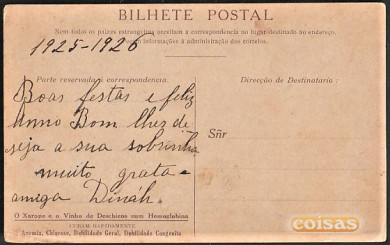 BILHETE POSTAL
Nem todos os paizes estrangeiros acceitam a correspondencia no lugar destinado ao endereço.
informações á administração dos correios.
1925-1926
Parte reservada á correspondencia.
Direcção do Destinatario:
Boas festas e feliz
Anno Bom lhes de-
seja a sua sobrinha
muito grata e
amiga Dináh.
Sñr
O Xarope e o Vinho de Deschiens com Hemoglobina
CURAM RAPIDAMENTE
Anemia, Chlorose, Debilidade Geral, Debilidade Congenita
coisas